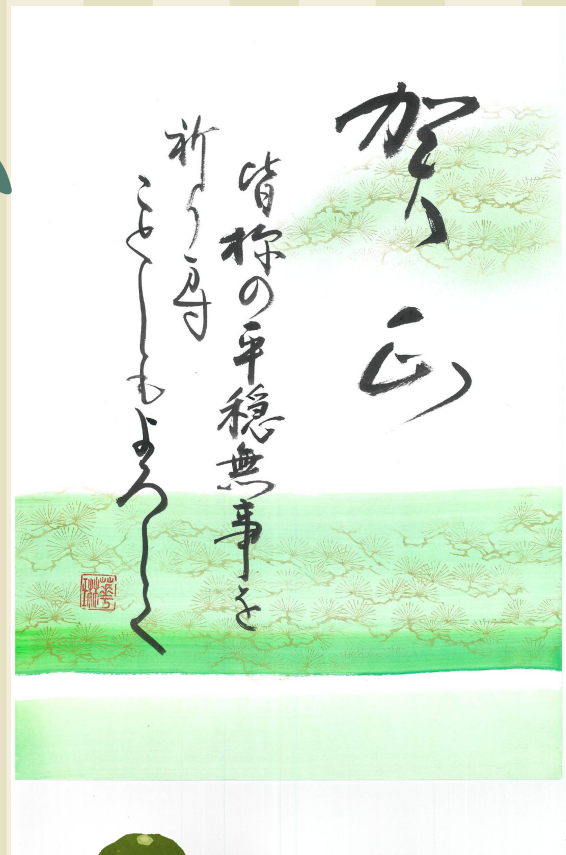 賀正
皆様の平穏無事を
祈ります
ことしもよろしく
華琳